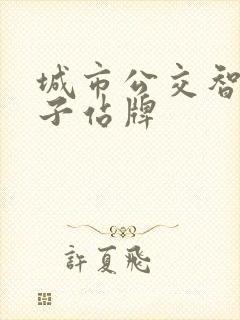 城市公交智
子佔牌
許夏飛